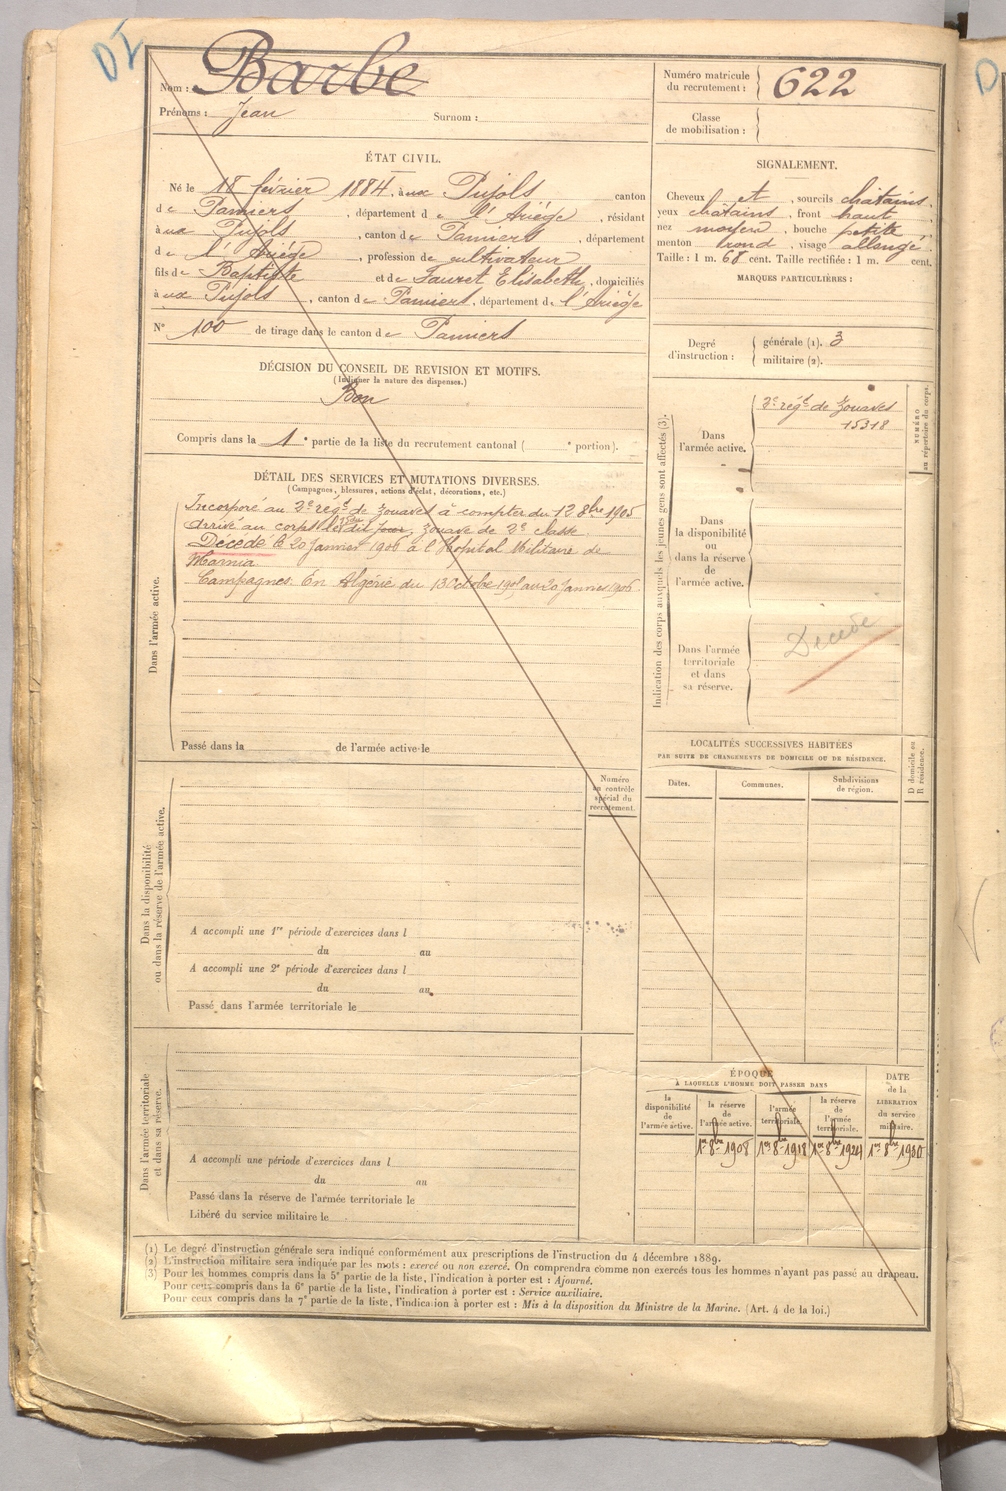 DI
Nom : Barbe
Prénoms : Jean Surnom :
Numéro matricule du recrutement : 622
Classe de mobilisation :
ÉTAT CIVIL.
Né le 18 février 1884, à aux Pujols canton
de Pamiers, département de l'Ariège, résidant
à aux Pujols, canton de Pamiers, département
de l'Ariège, profession de cultivateur
fils de Baptiste et de Sauret Elisabeth, domiciliés
à aux Pujols, canton de Pamiers, département de l'Ariège
N° 100 de tirage dans le canton de Pamiers
SIGNALEMENT.
Cheveux et, sourcils châtains,
yeux châtains, front haut,
nez moyen, bouche petite
menton rond, visage allongé.
Taille : 1 m. 68 cent. Taille rectifiée : 1 m. cent.
MARQUES PARTICULIÈRES :
Degré d'instruction : générale (1). 3
militaire (2).
DÉCISION DU CONSEIL DE REVISION ET MOTIFS.
(Indiquer la nature des dispenses.)
Bon
Compris dans la 1e partie de la liste du recrutement cantonal ( e portion).
DÉTAIL DES SERVICES ET MUTATIONS DIVERSES.
(Campagnes, blessures, actions d'éclat, décorations, etc.)
Dans l'armée active.
Incorporé au 2e régt de Zouaves à compter du 12 8bre 1905
Arrivé au corps le dit jour, zouave de 2e classe.
Décédé le 20 janvier 1906 à l'Hôpital Militaire de
Marnia
Campagnes. En Algérie du 13 Octobre 1905 au 20 Janvier 1906.
Passé dans la de l'armée active le
Indication des corps auxquels les jeunes gens sont affectés (3).
NUMÉRO au répertoire du corps.
Dans l'armée active.
2e régt de Zouaves
15318
Dans la disponibilité ou dans la réserve de l'armée active.
Dans l'armée territoriale et dans sa réserve.
Décédé
LOCALITÉS SUCCESSIVES HABITÉES
PAR SUITE DE CHANGEMENTS DE DOMICILE OU DE RÉSIDENCE.
Dates. Communes. Subdivisions de région. D domicile ou R résidence.
Dans la disponibilité ou dans la réserve de l'armée active.
Numéro au contrôle spécial du recrutement.
A accompli une 1re période d'exercices dans l
du au
A accompli une 2e période d'exercices dans l
du au
Passé dans l'armée territoriale le
Dans l'armée territoriale et dans sa réserve.
A accompli une période d'exercices dans l
du au
Passé dans la réserve de l'armée territoriale le
Libéré du service militaire le
ÉPOQUE
À LAQUELLE L'HOMME DOIT PASSER DANS
la disponibilité de l'armée active.
la réserve de l'armée active.
l'armée territoriale.
la réserve de l'armée territoriale.
DATE de la LIBÉRATION du service militaire.
1er 8bre 1908 1er 8bre 1918 1er 8bre 1924 1er 8bre 1930
(1) Le degré d'instruction générale sera indiqué conformément aux prescriptions de l'instruction du 4 décembre 1889.
(2) L'instruction militaire sera indiquée par les mots : exercé ou non exercé. On comprendra comme non exercés tous les hommes n'ayant pas passé au drapeau.
3) Pour les hommes compris dans la 5e partie de la liste, l'indication à porter est : Ajourné.
Pour ceux compris dans la 6e partie de la liste, l'indication à porter est : Service auxiliaire.
Pour ceux compris dans la 7e partie de la liste, l'indication à porter est : Mis à la disposition du Ministre de la Marine. (Art. 4 de la loi.)